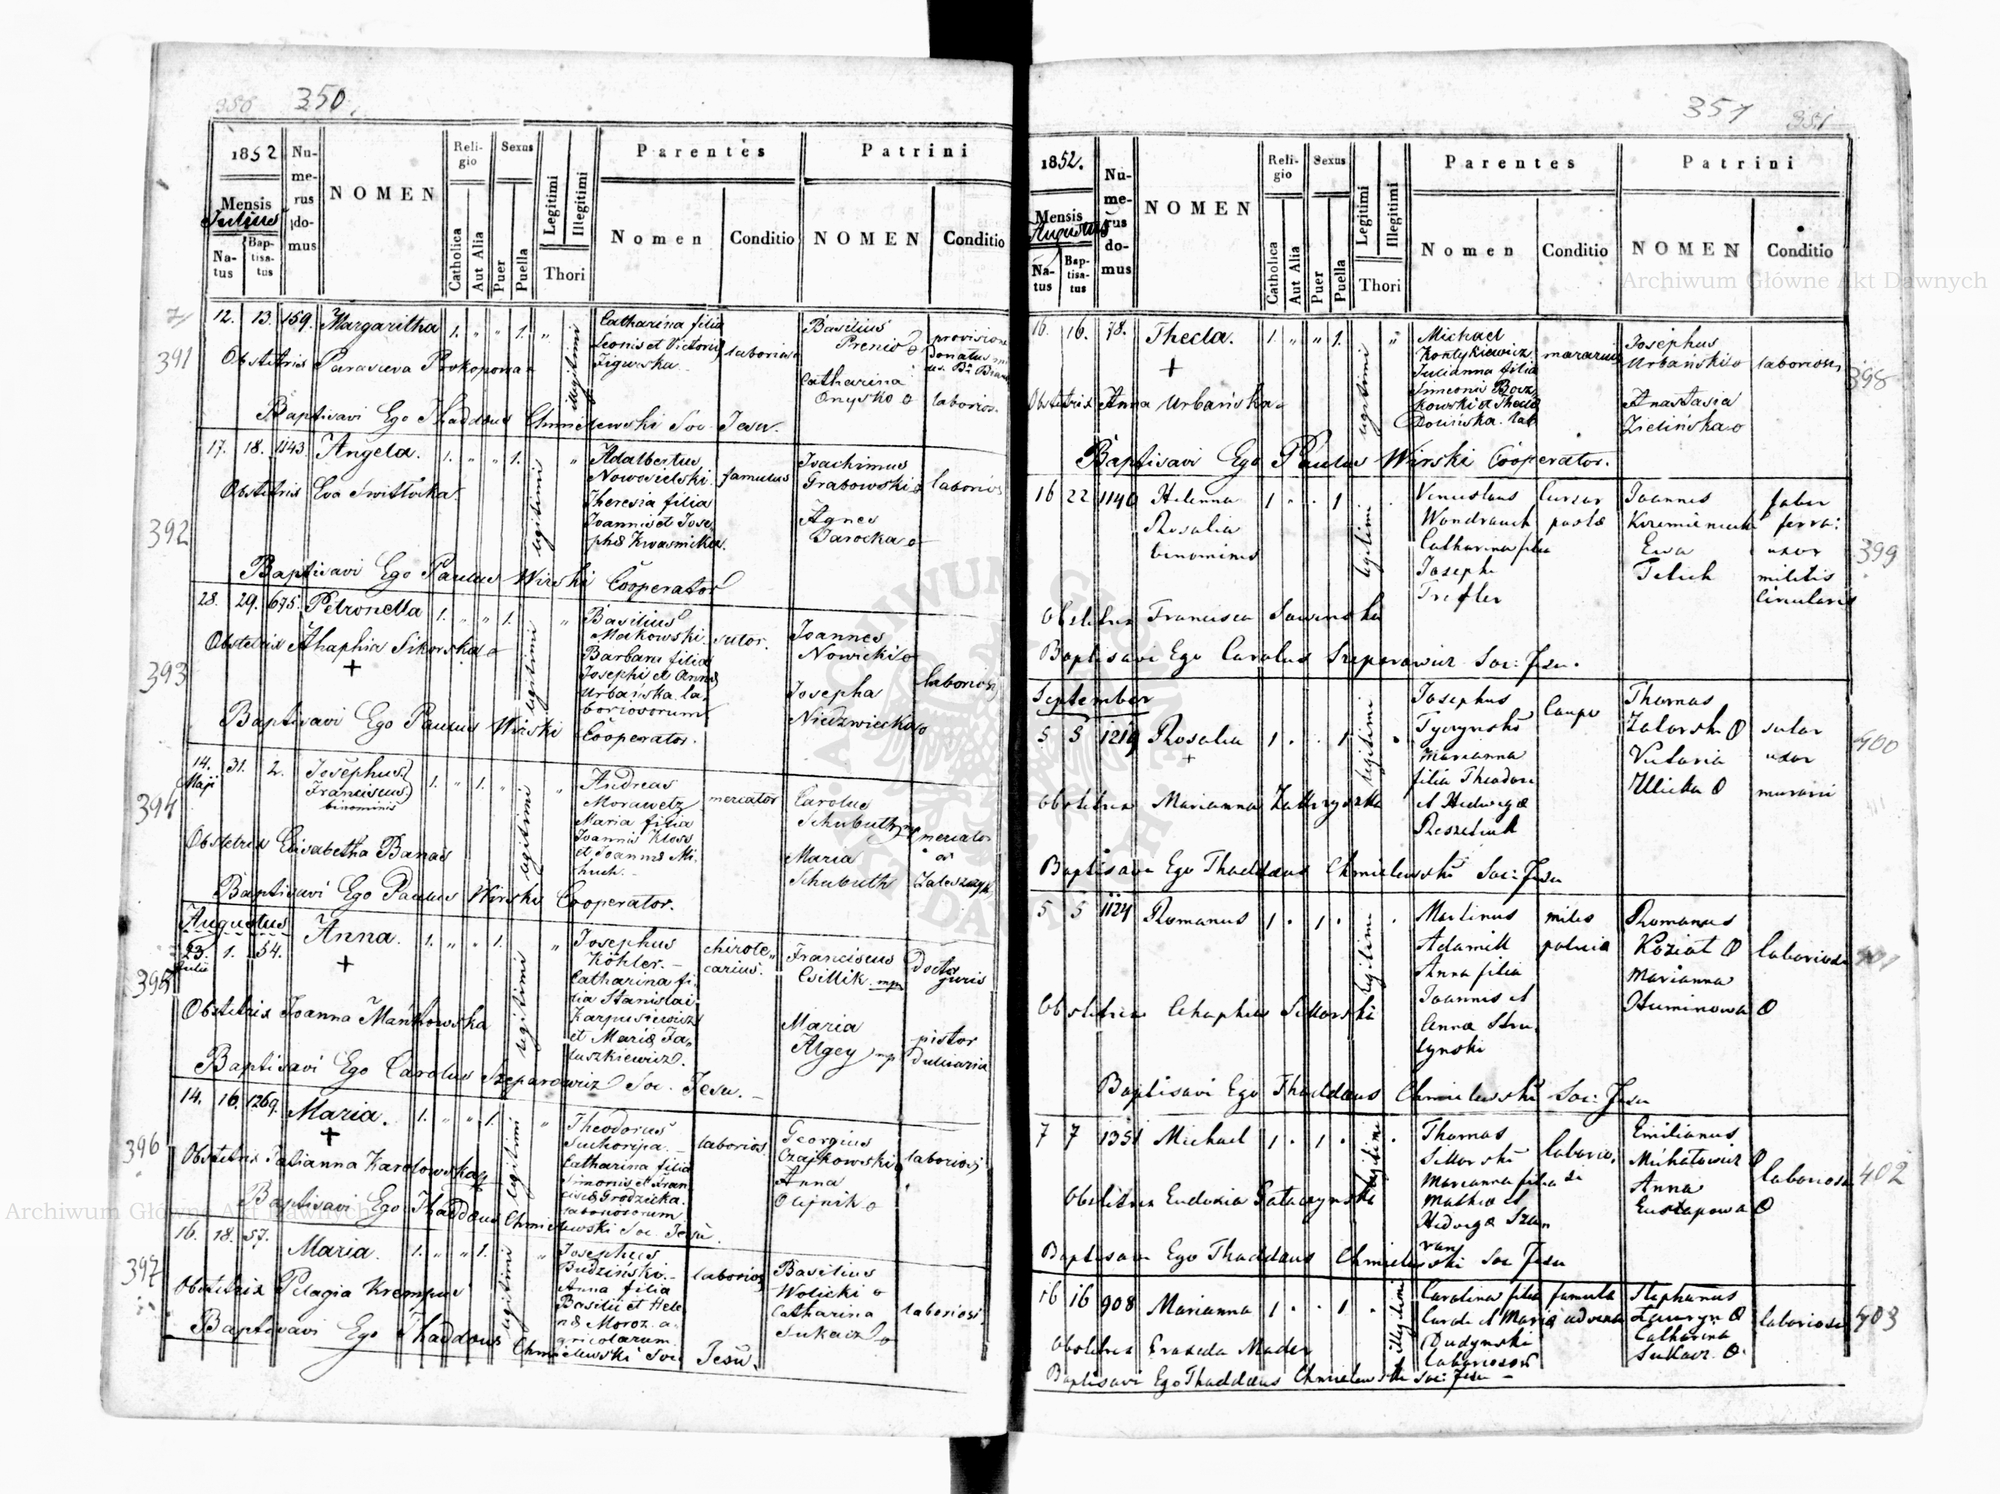 350.
1852
Mensis
Julius
Natus
Baptisatus
Numerus domus
NOMEN
Religio
Catholica
Aut Alia
Sexus
Puer
Puella
Legitimi
Illegitimi
Thori
Parentes
Nomen
Conditio
Patrini
NOMEN
Conditio
391
12. 13. 159. Margaritha 1. " " 1. " illegitimi
Catharina filia
Leonis et Victoriæ
laboriosa
Basilius
Catharina
Onysko
laborios.
Obstetrix Parasceva Prokopowa
Baptisavi Ego Thaddæus Chmielewski Soc. Jesu.
392
17. 18. 1143. Angela. 1. " " 1. legitimi "
Adalbertus
Nowosielski.
Theresia filia
Joannis et Jose-
phæ Kwasnicka.
famulus
Joachimus
Grabowski
Agnes
Jarocka
laborios
Obstetrix Eva
Baptisavi Ego Paulus Wirski Cooperator
393
28. 29. 675. Petronella 1. " " 1. legitimi "
Basilius
Makowski.
Barbara filia
Josephi et Annæ
Urbańska la-
boriosorum
sutor.
Joannes
Nowicki
Josepha
Niedzwiecka
laboriosi
Obstetrix Ahaphia Sikorska
+
Baptisavi Ego Paulus Wirski Cooperator.
394
14. Maji 31. 2. Josephus
Franciscus
binominis
1. " 1. " legitimi "
Andreas
Morawetz
Maria filia
Joannis Kloss
et Joannæ Mi-
huch.
mercator
Carolus
Schubuth mp
Maria
Schubuth
mercator
Zaleszczyk
Obstetrix Elisabetha Banas
Baptisavi Ego Paulus Wirski Cooperator.
Augustus
395
23. Julii 1. 54. Anna. 1. " " 1. legitimi "
+
Josephus
Köhler.
Catharina fi-
lia Stanislai
Karpusiewicz
et Mariæ Ja-
luszkiewicz.
chirote-
carius.
Franciscus
Csillik mp
Maria
Algey mp
Doctor
juris
pistor
dulciarius
Obstetrix Joanna Mańkowska
Baptisavi Ego Carolus Szeparowicz Soc. Jesu.
396
14. 16. 1269. Maria. 1. " " 1. legitimi "
+
Theodorus
Suchorija.
Catharina filia
Simonis et Fran-
ciscæ Grodzicka.
laboriosorum
laborios.
Georgius
Czajkowski
Anna
Olijnik
laboriosi
Obstetrix Tatianna Karolowska
Baptisavi Ego Thaddæus Chmielewski Soc. Jesu.
397
16. 18. 57. Maria. 1. " " 1. legitimi "
Josephus
Budziński.
Anna filia
Basilii et Hele-
næ Moroz a-
gricolarum
laborios
Basilius
Wolicki
Catharina
Sukacz
laboriosi.
Obstetrix Pelagia Krempus
Baptisavi Ego Thaddæus Chmielewski Soc. Jesu.
351
1852.
Mensis
Augustus
Natus
Baptisatus
Numerus domus
NOMEN
Religio
Catholica
Aut Alia
Sexus
Puer
Puella
Legitimi
Illegitimi
Thori
Parentes
Nomen
Conditio
Patrini
NOMEN
Conditio
16. 16. 78. Thecla. 1. " " 1. legitimi "
+
Michael
Kontykiewicz
Julianna filia
Simeonis
murarius
Josephus
Urbański
Anastasia
Zielińska
laboriosi
398
Obstetrix Anna Urbańska
Baptisavi Ego Paulus Wirski Cooperator.
16 22 1140 Helenna
Rosalia
binominis
1 " . 1 legitimi
Venceslaus
Wondrauch
Catharina filia
Joseph
Trefler
Cursor
postæ
Joannes
Ewa
Telich
faber
ferra:
uxor
militis
Circularis
399
Obstetrix Francisca Sawinska
Baptisavi Ego Carolus Szeparowicz Soc: Jesu.
September
5 5 1219 Rosalia 1 . . 1 legitimi
+
Josephus
Tyczynski
Marianna
filia Theodori
et Hedwigæ
Reszetiuk
Caupo
Thomas
Zatorski
Victoria
Ulicka
sutor
uxor
murarii
400
Obstetrix Marianna
Baptisavi Ego Thaddæus Chmielewski Soc: Jesu
5 5 1124 Romanus 1 . 1 . legitimi
Martinus
Adamik
Anna filia
Joannis et
Annæ Stru-
tynski
miles
Romanus
Koziat
Marianna
Huminowa
laboriosi
401
Obstetrix Ahaphia Sikorski
Baptisavi Ego Thaddæus Chmielewski Soc: Jesu
7 7 1351 Michael 1 . 1 . legitimi
Thomas
Sikorski
Marianna filia
Mathiæ et
Hedwigæ
laborio-
si
Emilianus
Michatowicz
Anna
Eustapowa
laboriosi
402
Obstetrix Eudoxia Gataczynska
Baptisavi Ego Thaddæus Chmielewski Soc Jesu
16 16 908 Marianna 1 . . 1 . illegitimi
Carolina filia
Caroli et Mariæ
Dudynski
laboriosor
famula
advena
Stephanus
Ławryn
Catharina
Sukacz
laboriosi
403
Obstetrix Mader
Baptisavi Ego Thaddæus Chmielewski Soc: Jesu
Archiwum Główne Akt Dawnych
Archiwum Główne Akt Dawnych